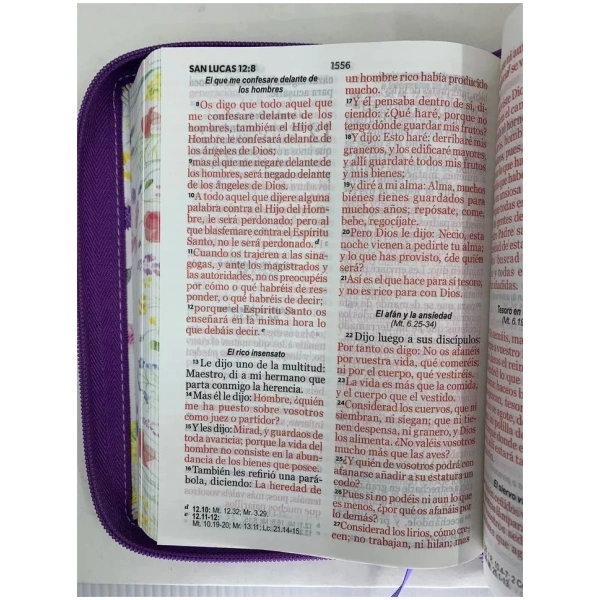 SAN LUCAS 12:8
1556
El que me confesare delante de
los hombres
8Os digo que todo aquel que
me confesare delante de los
hombres, también el Hijo del
Hombre le confesará delante de
los ángeles de Dios;
9mas el que me negare delante de
los hombres, será negado delante
de los ángeles de Dios.
10A todo aquel que dijere alguna
palabra contra el Hijo del Hom-
bre, le será perdonado; pero al
que blasfemare contra el Espíritu
Santo, no le será perdonado. d
11Cuando os trajeren a las sina-
gogas, y ante los magistrados y
las autoridades, no os preocupéis
por cómo o qué habréis de res-
ponder, o qué habréis de decir;
12porque el Espíritu Santo os
enseñará en la misma hora lo
que debáis decir. e
El rico insensato
13Le dijo uno de la multitud:
Maestro, di a mi hermano que
parta conmigo la herencia.
14Mas él le dijo: Hombre, ¿quién
me ha puesto sobre vosotros
como juez o partidor?
15Y les dijo: Mirad, y guardaos de
toda avaricia; porque la vida del
hombre no consiste en la abun-
dancia de los bienes que posee.
16También les refirió una pará-
bola, diciendo: La heredad de
d 12.10: Mt. 12.32; Mr. 3.29.
e 12.11-12:
Mt. 10.19-20; Mr. 13.11; Lc. 21.14-15;
un hombre rico había producido
mucho.
17Y él pensaba dentro de sí, di-
ciendo: ¿Qué haré, porque no
tengo dónde guardar mis frutos?
18Y dijo: Esto haré: derribaré mis
graneros, y los edificaré mayores,
y allí guardaré todos mis frutos
y mis bienes;
19y diré a mi alma: Alma, muchos
bienes tienes guardados para
muchos años; repósate, come,
bebe, regocíjate.
20Pero Dios le dijo: Necio, esta
noche vienen a pedirte tu alma;
y lo que has provisto, ¿de quién
será?
21Así es el que hace para sí tesoro,
y no es rico para con Dios.
El afán y la ansiedad
(Mt. 6.25-34)
22Dijo luego a sus discípulos:
Por tanto os digo: No os afanéis
por vuestra vida, qué comeréis;
ni por el cuerpo, qué vestiréis.
23La vida es más que la comida,
y el cuerpo que el vestido.
24Considerad los cuervos, que ni
siembran, ni siegan; que ni tie-
nen despensa, ni granero, y Dios
los alimenta. ¿No valéis vosotros
mucho más que las aves?
25¿Y quién de vosotros podrá con
afanarse añadir a su estatura un
codo?
26Pues si no podéis ni aun lo que
es menos, ¿por qué os afanáis por
lo demás?
27Considerad los lirios, cómo cre-
cen; no trabajan, ni hilan; mas
Tesoro en